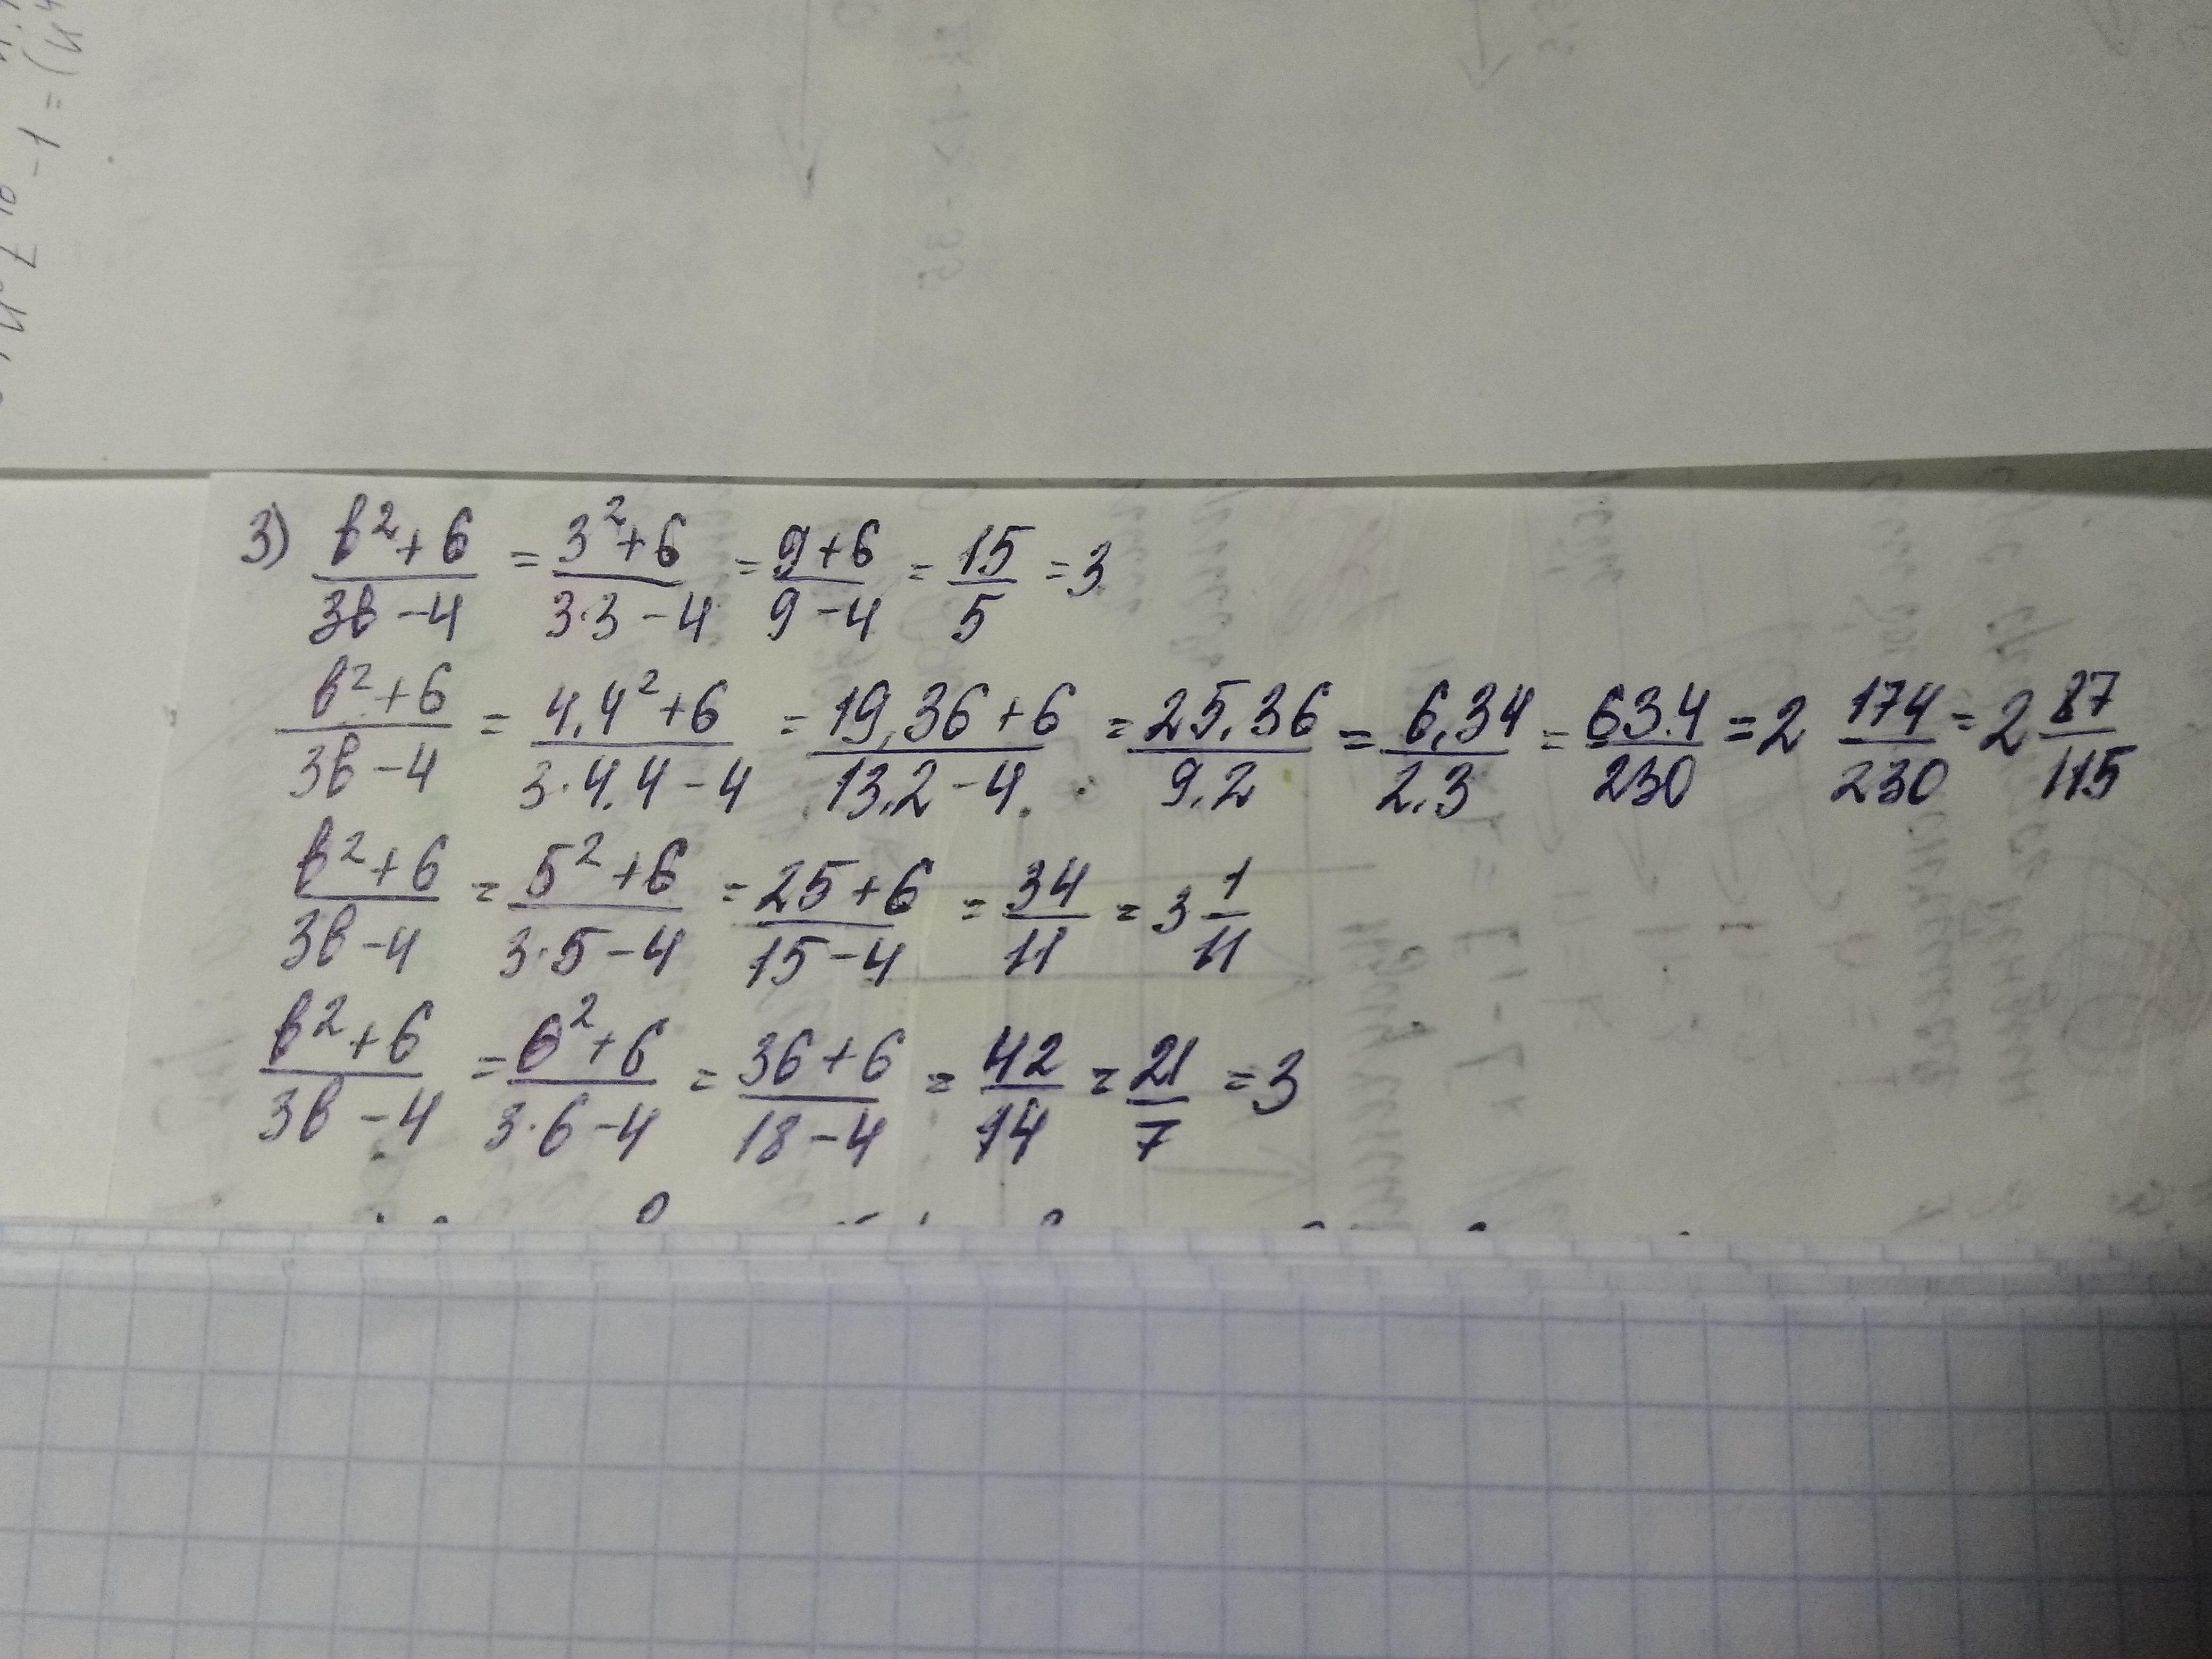 3) (b²+6)/(3b-4) = (3²+6)/(3·3-4) = (9+6)/(9-4) = 15/5 = 3
(b²+6)/(3b-4) = (4,4²+6)/(3·4,4-4) = (19,36+6)/(13,2-4) = 25,36/9,2 = 6,34/2,3 = 634/230 = 2 174/230 = 2 87/115
(b²+6)/(3b-4) = (5²+6)/(3·5-4) = (25+6)/(15-4) = 34/11 = 3 1/11
(b²+6)/(3b-4) = (6²+6)/(3·6-4) = (36+6)/(18-4) = 42/14 = 21/7 = 3